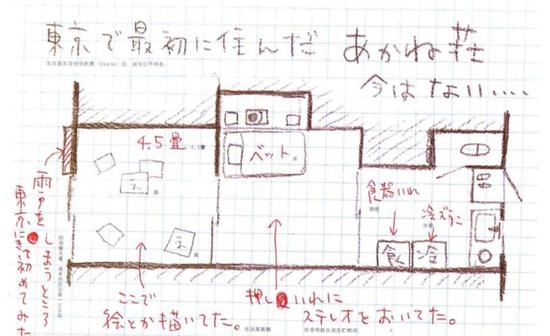 東京で最初に住んだ あかね荘
今はない….
4.5畳
ベット
食器いれ
冷ぞうこ
食
冷
え
え
雨戸をしまうところ
東京にきて初めてみた
ここで
絵とか描いてた。
押しいれに
ステレオをおいてた。